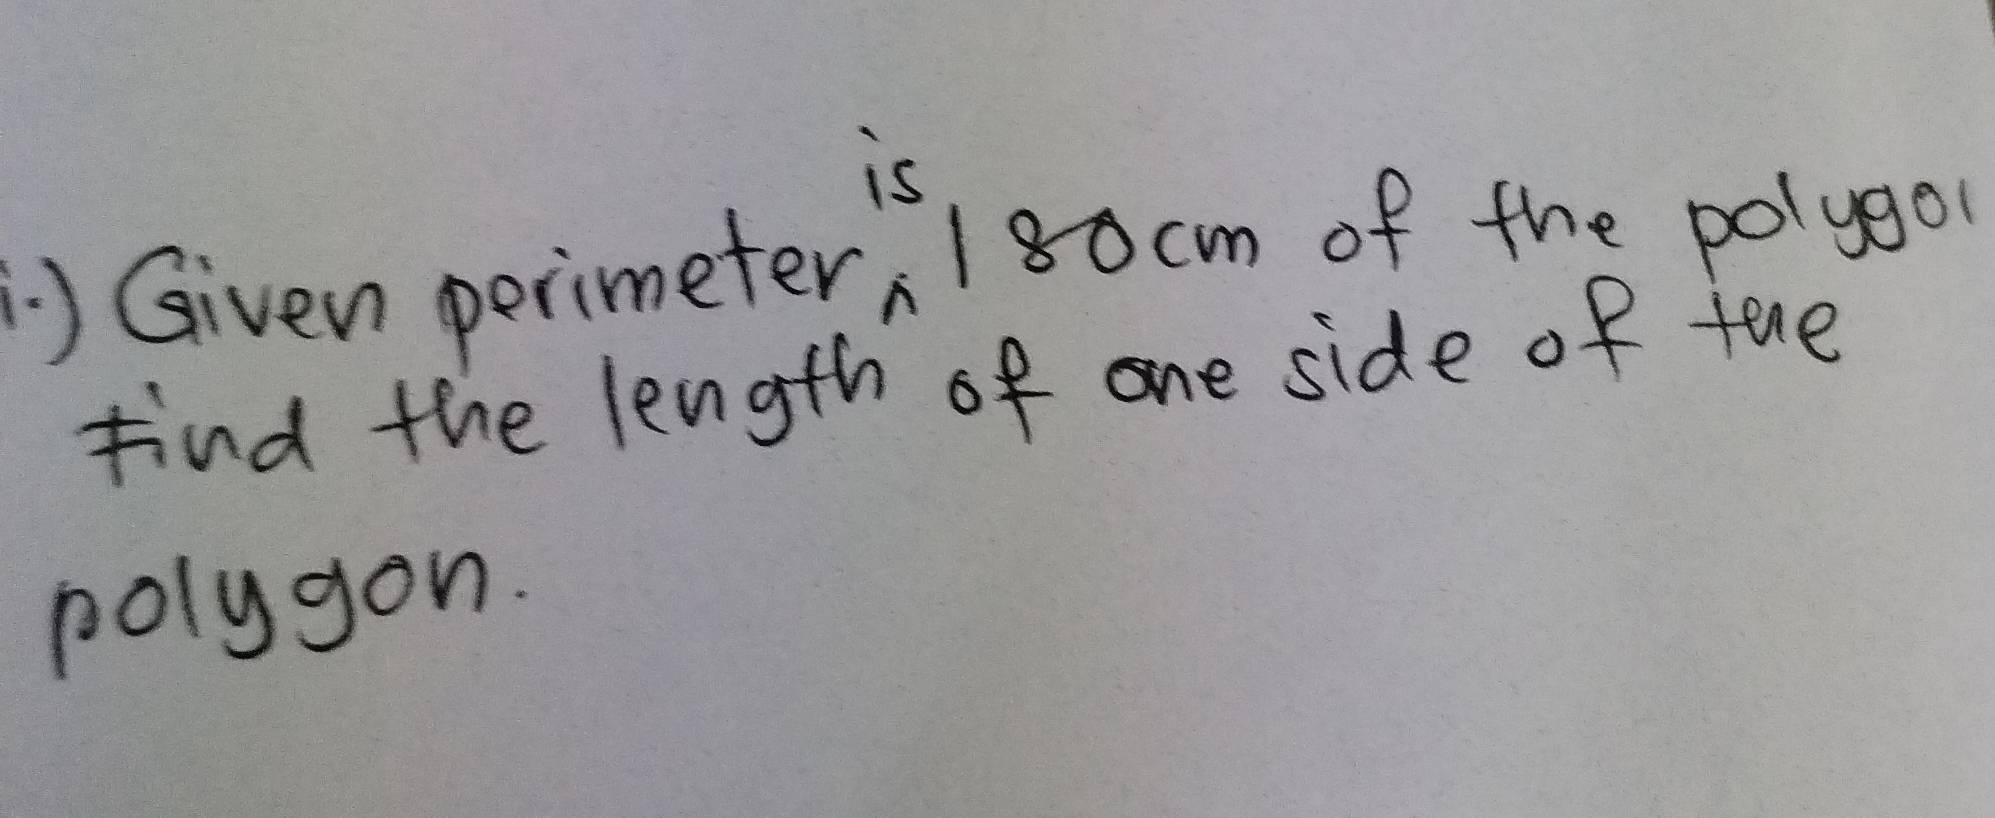 i.) Given perimeter is 180cm of the polygon
find the length of one side of the
polygon.